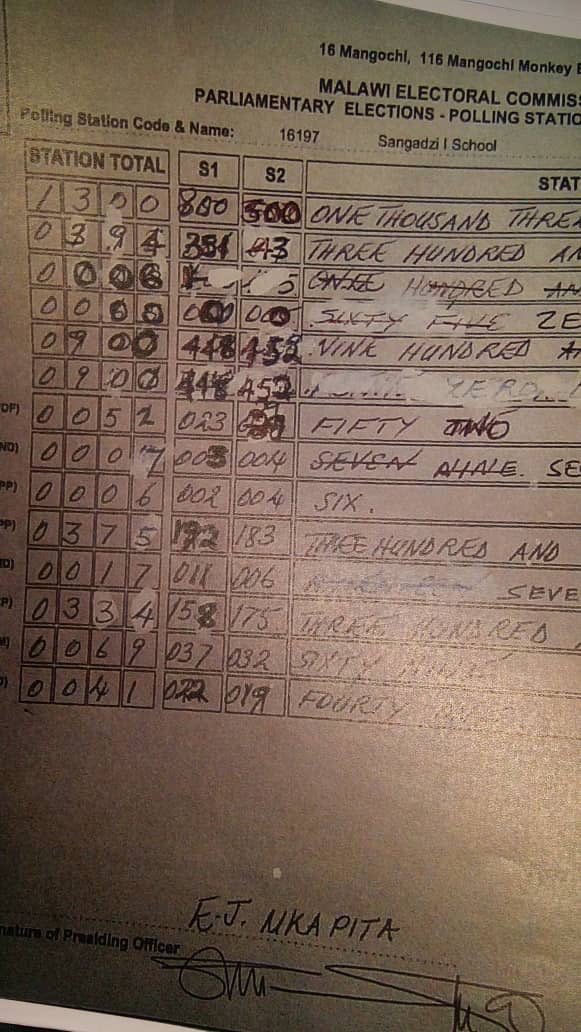 16 Mangochi, 116 Mangochi Monkey B
MALAWI ELECTORAL COMMISS
PARLIAMENTARY ELECTIONS - POLLING STATIO
Polling Station Code & Name: 16197 Sangadzi I School
STATION TOTAL S1 S2 STAT
1 3 0 0 800 500 ONE THOUSAND THREE
0 3 9 4 351 43 THREE HUNDRED AN
0 0 0 6 HUNDRED AN
0 0 0 0 000 000 SIXTY FIVE ZE
0 9 0 0 448 452 NINE HUNDRED
0 9 0 0 448 452 ZERO
DP) 0 0 5 2 023 FIFTY TWO
ND) 0 0 0 7 003 004 SEVEN SE
PP) 0 0 0 6 002 004 SIX.
PP) 0 3 7 5 192 183 THREE HUNDRED AND
D) 0 0 1 7 011 006 SEVE
P) 0 3 3 4 158 175 THREE HUNDRED
M) 0 0 6 9 037 032 SIXTY NINE
) 0 0 4 1 022 019 FOURTY
E.J. MKAPITA
nature of Presiding Officer